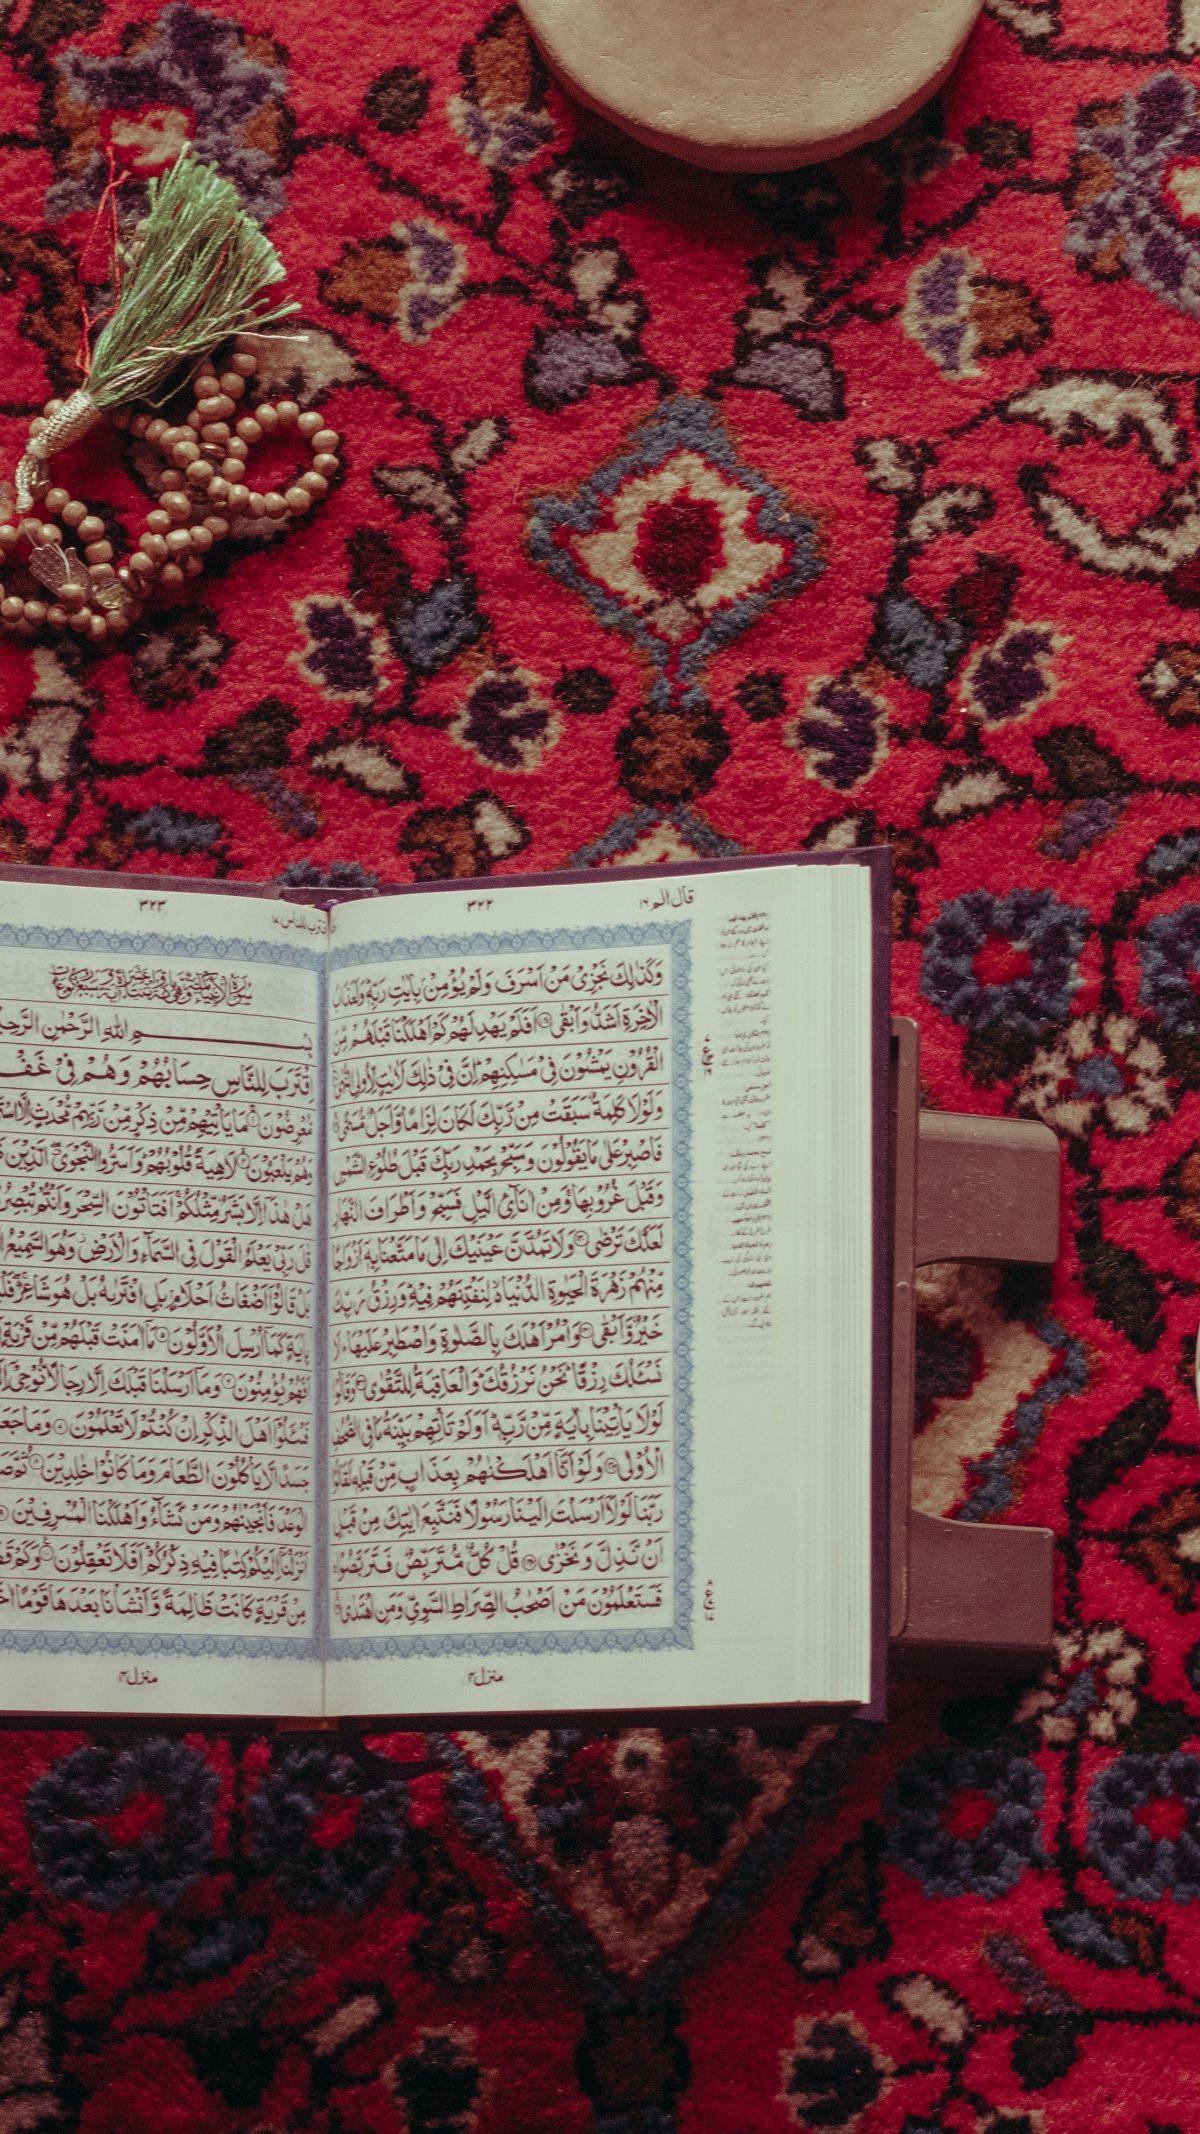 قال الم ١٦
٣٢٢
وَكَذٰلِكَ نَجْزِيْ مَنْ اَسْرَفَ وَلَمْ يُؤْمِنْۢ بِاٰيٰتِ رَبِّهٖ ؕ وَلَعَذَابُ
الْاٰخِرَةِ اَشَدُّ وَاَبْقٰى ۝۱۲۷ اَفَلَمْ يَهْدِ لَهُمْ كَمْ اَهْلَكْنَا قَبْلَهُمْ مِّنَ
الْقُرُوْنِ يَمْشُوْنَ فِيْ مَسٰكِنِهِمْ ؕ اِنَّ فِيْ ذٰلِكَ لَاٰيٰتٍ لِّاُولِي النُّهٰى
وَلَوْلَا كَلِمَةٌ سَبَقَتْ مِنْ رَّبِّكَ لَكَانَ لِزَامًا وَّاَجَلٌ مُّسَمًّى
فَاصْبِرْ عَلٰى مَا يَقُوْلُوْنَ وَسَبِّحْ بِحَمْدِ رَبِّكَ قَبْلَ طُلُوْعِ الشَّمْسِ
وَقَبْلَ غُرُوْبِهَا ۚ وَمِنْ اٰنَآئِ الَّيْلِ فَسَبِّحْ وَاَطْرَافَ النَّهَارِ
لَعَلَّكَ تَرْضٰى ۝۱۳۰ وَلَا تَمُدَّنَّ عَيْنَيْكَ اِلٰى مَا مَتَّعْنَا بِهٖۤ اَزْوَاجًا
مِّنْهُمْ زَهْرَةَ الْحَيٰوةِ الدُّنْيَا ۙ لِنَفْتِنَهُمْ فِيْهِ ؕ وَرِزْقُ رَبِّكَ
خَيْرٌ وَّاَبْقٰى ۝۱۳۱ وَاْمُرْ اَهْلَكَ بِالصَّلٰوةِ وَاصْطَبِرْ عَلَيْهَا ؕ لَا
نَسْـَٔلُكَ رِزْقًا ؕ نَحْنُ نَرْزُقُكَ ؕ وَالْعَاقِبَةُ لِلتَّقْوٰى ۝۱۳۲ وَقَالُوْا
لَوْلَا يَاْتِيْنَا بِاٰيَةٍ مِّنْ رَّبِّهٖ ؕ اَوَلَمْ تَاْتِهِمْ بَيِّنَةُ مَا فِي الصُّحُفِ
الْاُوْلٰى ۝۱۳۳ وَلَوْ اَنَّاۤ اَهْلَكْنٰهُمْ بِعَذَابٍ مِّنْ قَبْلِهٖ لَقَالُوْا
رَبَّنَا لَوْلَاۤ اَرْسَلْتَ اِلَيْنَا رَسُوْلًا فَنَتَّبِعَ اٰيٰتِكَ مِنْ قَبْلِ
اَنْ نَّذِلَّ وَنَخْزٰى ۝۱۳۴ قُلْ كُلٌّ مُّتَرَبِّصٌ فَتَرَبَّصُوْا ۚ
فَسَتَعْلَمُوْنَ مَنْ اَصْحٰبُ الصِّرَاطِ السَّوِيِّ وَمَنِ اهْتَدٰى ۝۱۳۵
منزل ۴
اقترب للناس ١٧
٣٢٣
ـمِ اللّٰهِ الرَّحْمٰنِ الرَّحِيـ
اِقْتَرَبَ لِلنَّاسِ حِسَابُهُمْ وَهُمْ فِيْ غَفْـ
مُّعْرِضُوْنَ ۝۱ مَا يَاْتِيْهِمْ مِّنْ ذِكْرٍ مِّنْ رَّبِّهِمْ مُّحْدَثٍ اِلَّا اسْتَـ
وَهُمْ يَلْعَبُوْنَ ۝۲ لَاهِيَةً قُلُوْبُهُمْ ؕ وَاَسَرُّوا النَّجْوَى ۖ الَّذِيْنَ
هَلْ هٰذَاۤ اِلَّا بَشَرٌ مِّثْلُكُمْ ۚ اَفَتَاْتُوْنَ السِّحْرَ وَاَنْتُمْ تُبْصِرُ
قٰلَ رَبِّيْ يَعْلَمُ الْقَوْلَ فِي السَّمَآءِ وَالْاَرْضِ ؗ وَهُوَ السَّمِيْعُ
بَلْ قَالُوْۤا اَضْغَاثُ اَحْلَامٍۭ بَلِ افْتَرٰىهُ بَلْ هُوَ شَاعِرٌ ۖۚ فَلْـ
بِاٰيَةٍ كَمَاۤ اُرْسِلَ الْاَوَّلُوْنَ ۝۵ مَاۤ اٰمَنَتْ قَبْلَهُمْ مِّنْ قَرْيَةٍ
اَفَهُمْ يُؤْمِنُوْنَ ۝۶ وَمَاۤ اَرْسَلْنَا قَبْلَكَ اِلَّا رِجَالًا نُّوْحِيْۤ
فَسْـَٔلُوْۤا اَهْلَ الذِّكْرِ اِنْ كُنْتُمْ لَا تَعْلَمُوْنَ ۝۷ وَمَا جَعَـ
جَسَدًا لَّا يَاْكُلُوْنَ الطَّعَامَ وَمَا كَانُوْا خٰلِدِيْنَ ۝۸ ثُمَّ صَدَ
الْوَعْدَ فَاَنْجَيْنٰهُمْ وَمَنْ نَّشَآءُ وَاَهْلَكْنَا الْمُسْرِفِيْنَ ۝۹
اَنْزَلْنَاۤ اِلَيْكُمْ كِتٰبًا فِيْهِ ذِكْرُكُمْ ؕ اَفَلَا تَعْقِلُوْنَ ۝۱۰ وَكَمْ قَصَـ
مِنْ قَرْيَةٍ كَانَتْ ظَالِمَةً وَّاَنْشَاْنَا بَعْدَهَا قَوْمًا
منزل ۴